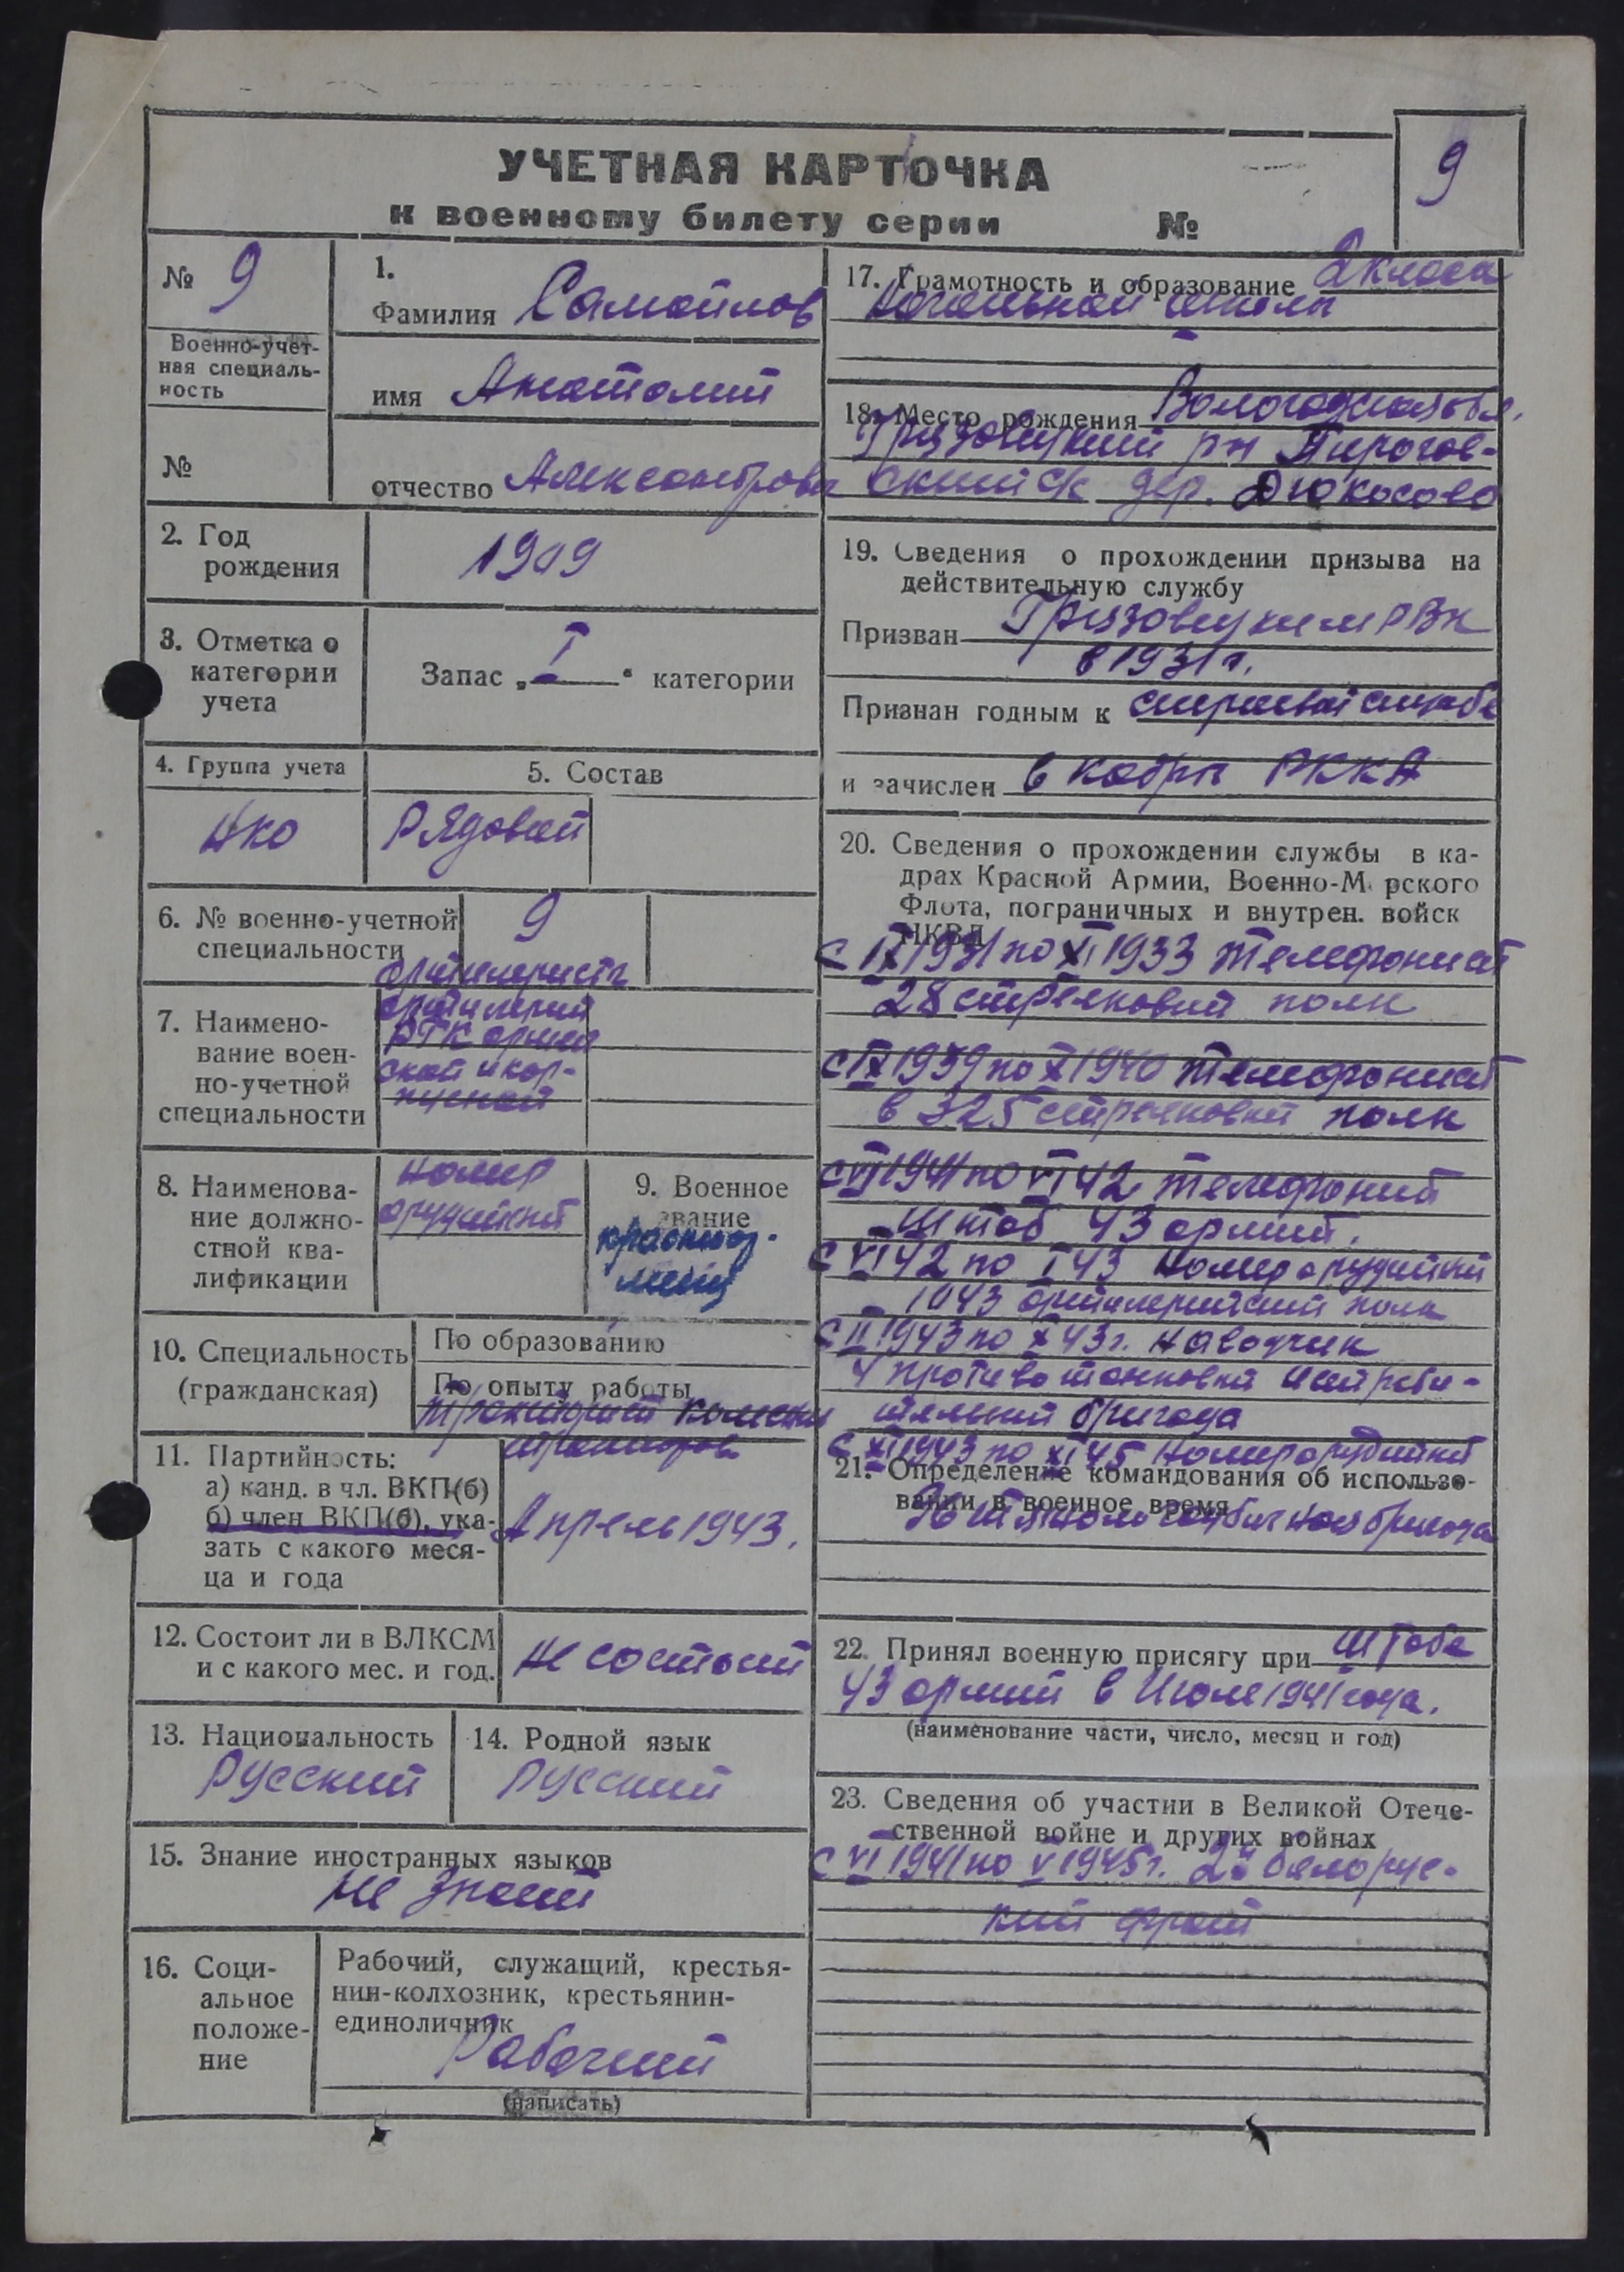 УЧЕТНАЯ КАРТОЧКА
к военному билету серии №
9
№ 9
Военно-учет-
ная специаль-
ность
№
1.
Фамилия Самойлов
имя Анатолий
отчество Александрович
2. Год
рождения
1909
3. Отметка о
категории
учета
Запас „ I " категории
4. Группа учета
НКО
5. Состав
Рядовой
6. № военно-учетной
специальности
9
7. Наимено-
вание воен-
но-учетной
специальности
артилеристы
артилерии
РГК армей
ской и кор-
пусной
8. Наименова-
ние должно-
стной ква-
лификации
номер
орудийный
9. Военное
звание
красноар-
меец
10. Специальность
(гражданская)
По образованию
По опыту работы
тракторов
11. Партийность:
а) канд. в чл. ВКП(б)
б) член ВКП(б), ука-
зать с какого меся-
ца и года
Апрель 1943.
12. Состоит ли в ВЛКСМ
и с какого мес. и год.
Не состоит
13. Национальность
Русский
14. Родной язык
Русский
15. Знание иностранных языков
Не знает
16. Соци-
альное
положе-
ние
Рабочий, служащий, крестья-
нин-колхозник, крестьянин-
единоличник
Рабочий
(написать)
17. Грамотность и образование 2 класа
Начальной школы
18. Место рождения Вологодская обл.
Грязовецкий рн Пирогов-
ский с/с дер. Дюкосово
19. Сведения о прохождении призыва на
действительную службу
Призван Грязовецким РВК
в 1931 г.
Признан годным к строевой службе
и зачислен в кадры РККА
20. Сведения о прохождении службы в ка-
драх Красной Армии, Военно-Морского
Флота, пограничных и внутрен. войск
НКВД
с IX 1931 по XI 1933 телефонист
28 стрелковый полк
с IX 1939 по X 1940 телефонист
в 325 стрелковый полк
с VI 1941 по VI 42 телефоний
штаб 43 армий.
с VI 42 по I 43 номер орудийный
1043 артилерийский полк
с II 1943 по X 43 г. наводчик
4 противотанковый истреби-
тельный бригада
с XI 1943 по XI 45 номер орудийный
21. Определение командования об использо-
вании в военное время
бригада
22. Принял военную присягу при штабе
43 армий в Июле 1941 года.
(наименование части, число, месяц и год)
23. Сведения об участии в Великой Отече-
ственной войне и других войнах
с VI 1941 по V 1945 г. 2й белорус-
кий фронт